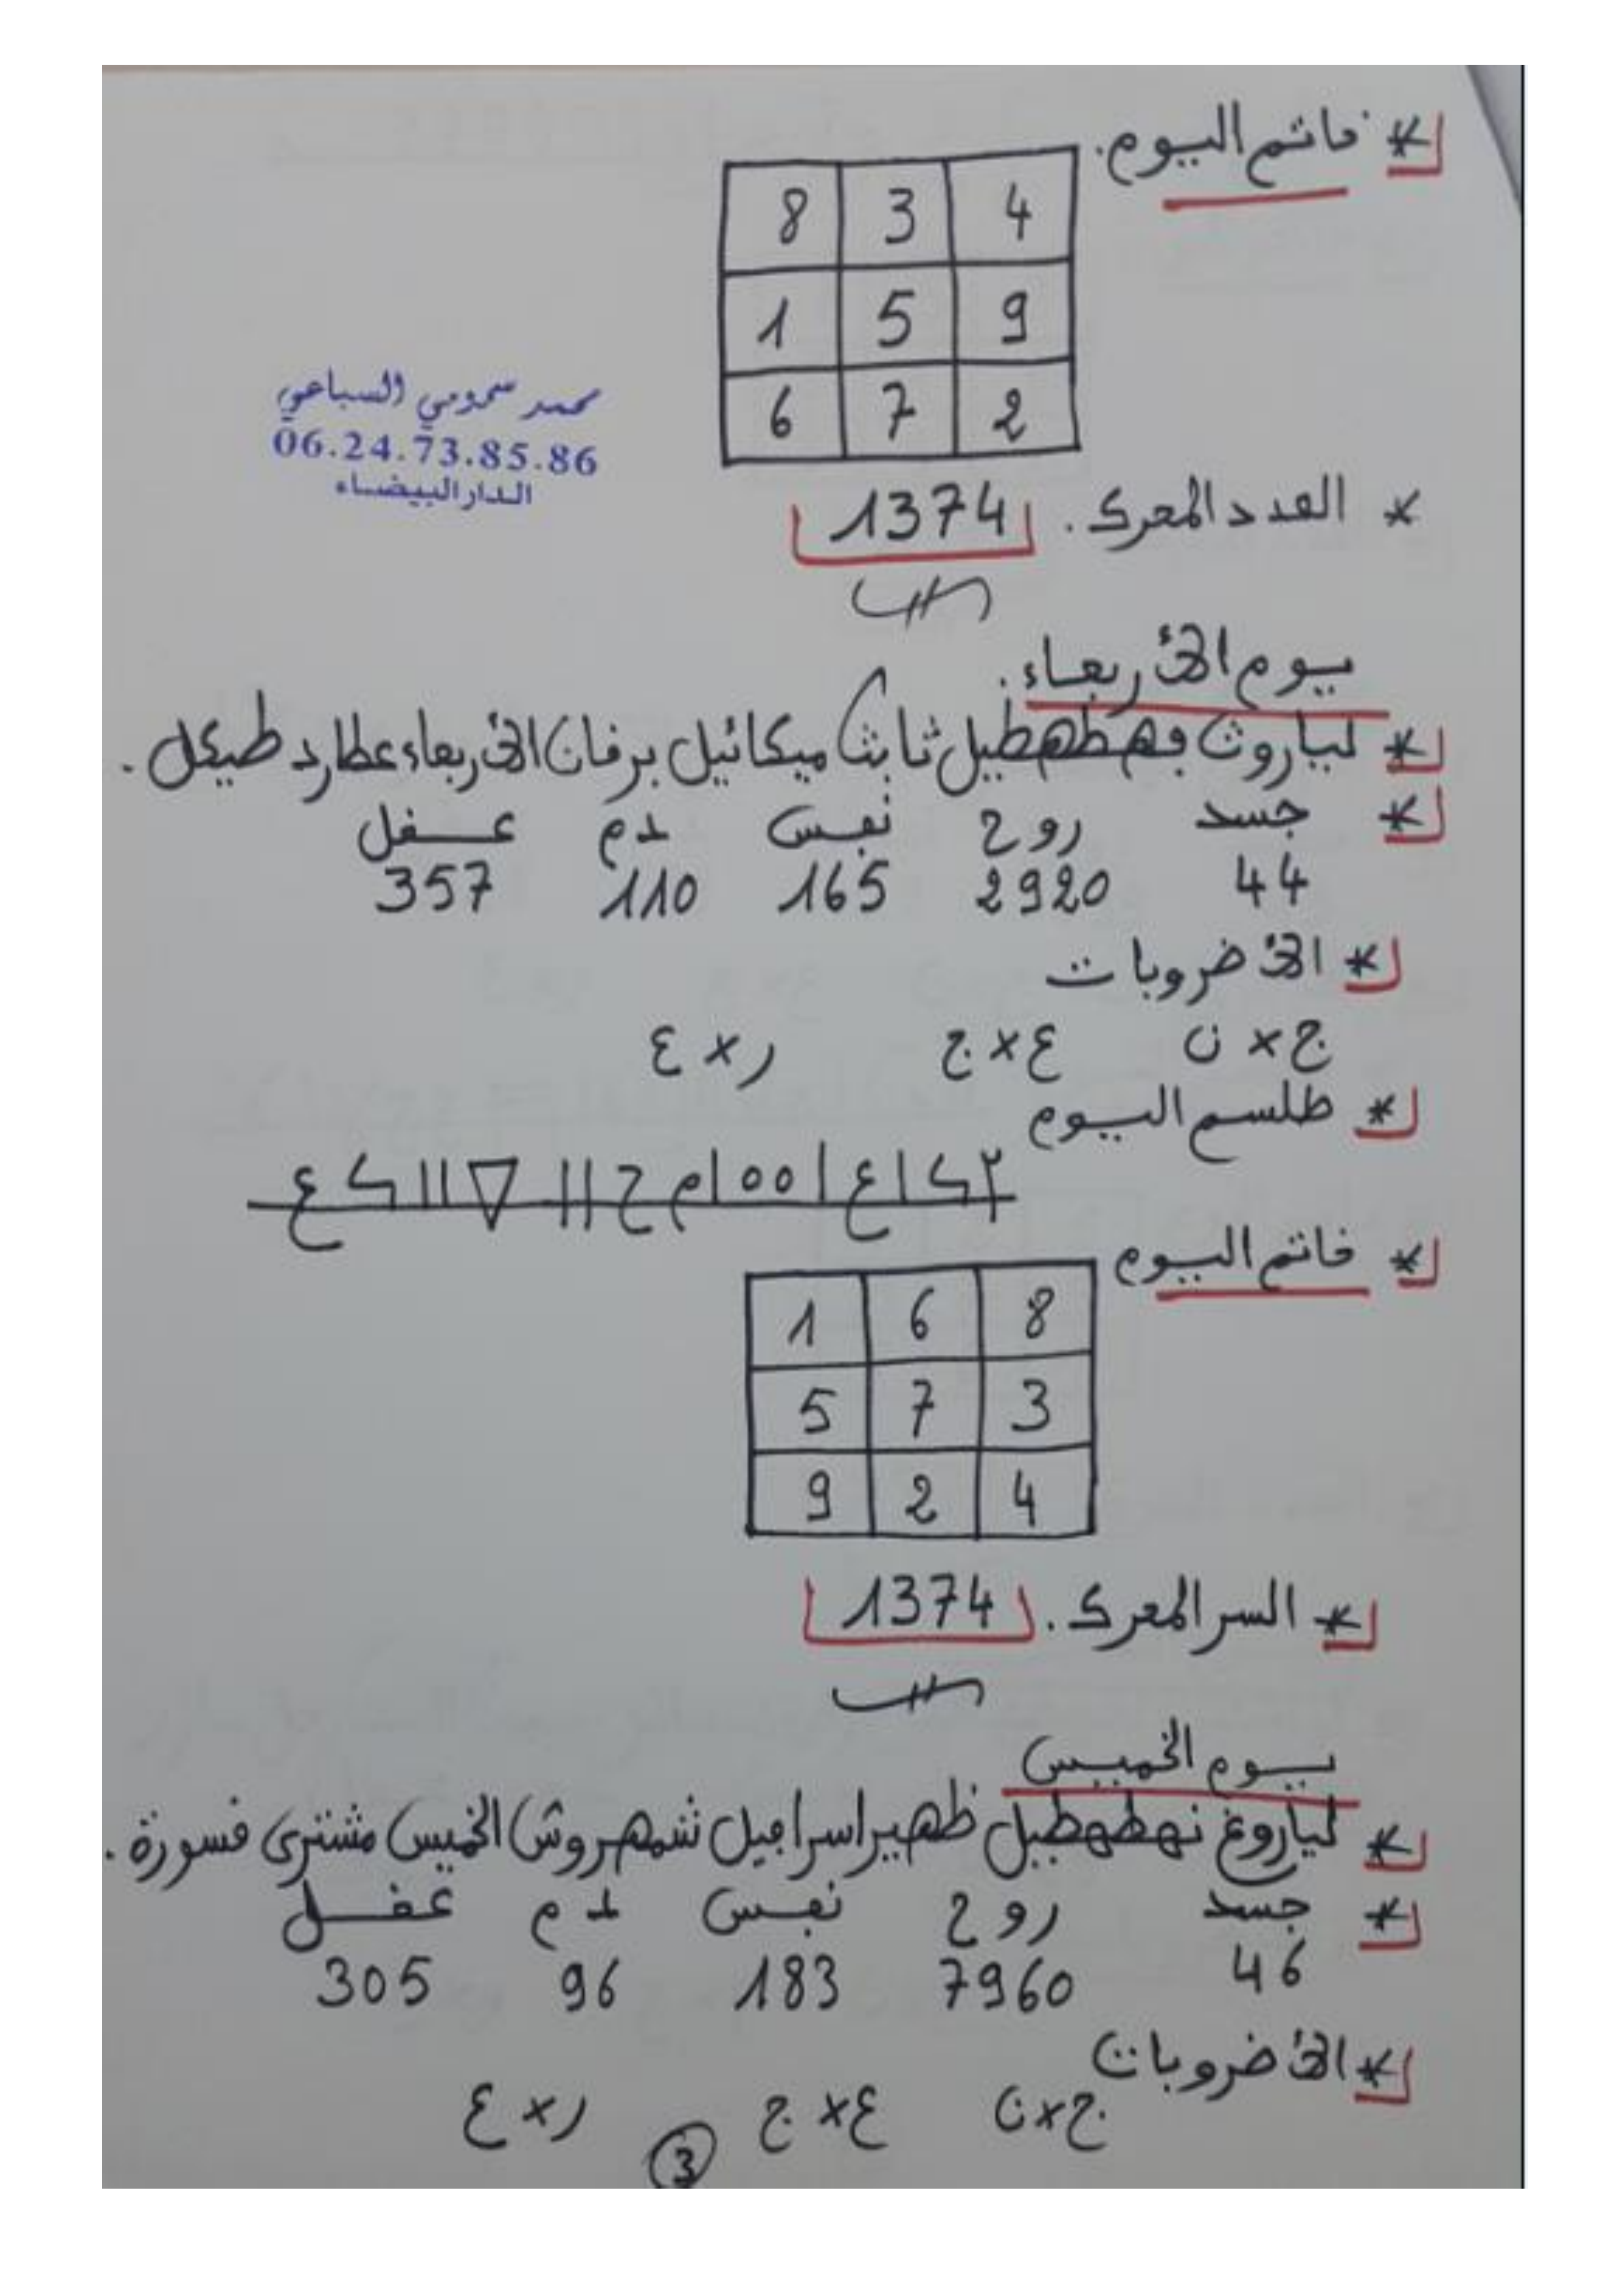 * خاتم اليوم.
8 3 4
1 5 9
6 7 2
محمد سمومي السباعي
06.24.73.85.86
الدار البيضاء
* العدد المحرك. 1374
يوم الأربعاء.
* لياروث فهطهطيل ثابث ميكائيل برقان الأربعاء عطارد طيكل.
* جسد روح نفس دم عقل
44 2920 165 110 357
* الأضروبات
ج × ن ع × ج ر × ع
* طلسم اليوم
* خاتم اليوم
1 6 8
5 7 3
9 2 4
* السر المحرك. 1374
يوم الخميس
* لياروغ نهطهطيل ظهير اسرافيل شمهروش الخميس مشتري قسورة.
* جسد روح نفس دم عقل
46 7960 183 96 305
* الأضروبات
ج × ن ع × ج ر × ع
3